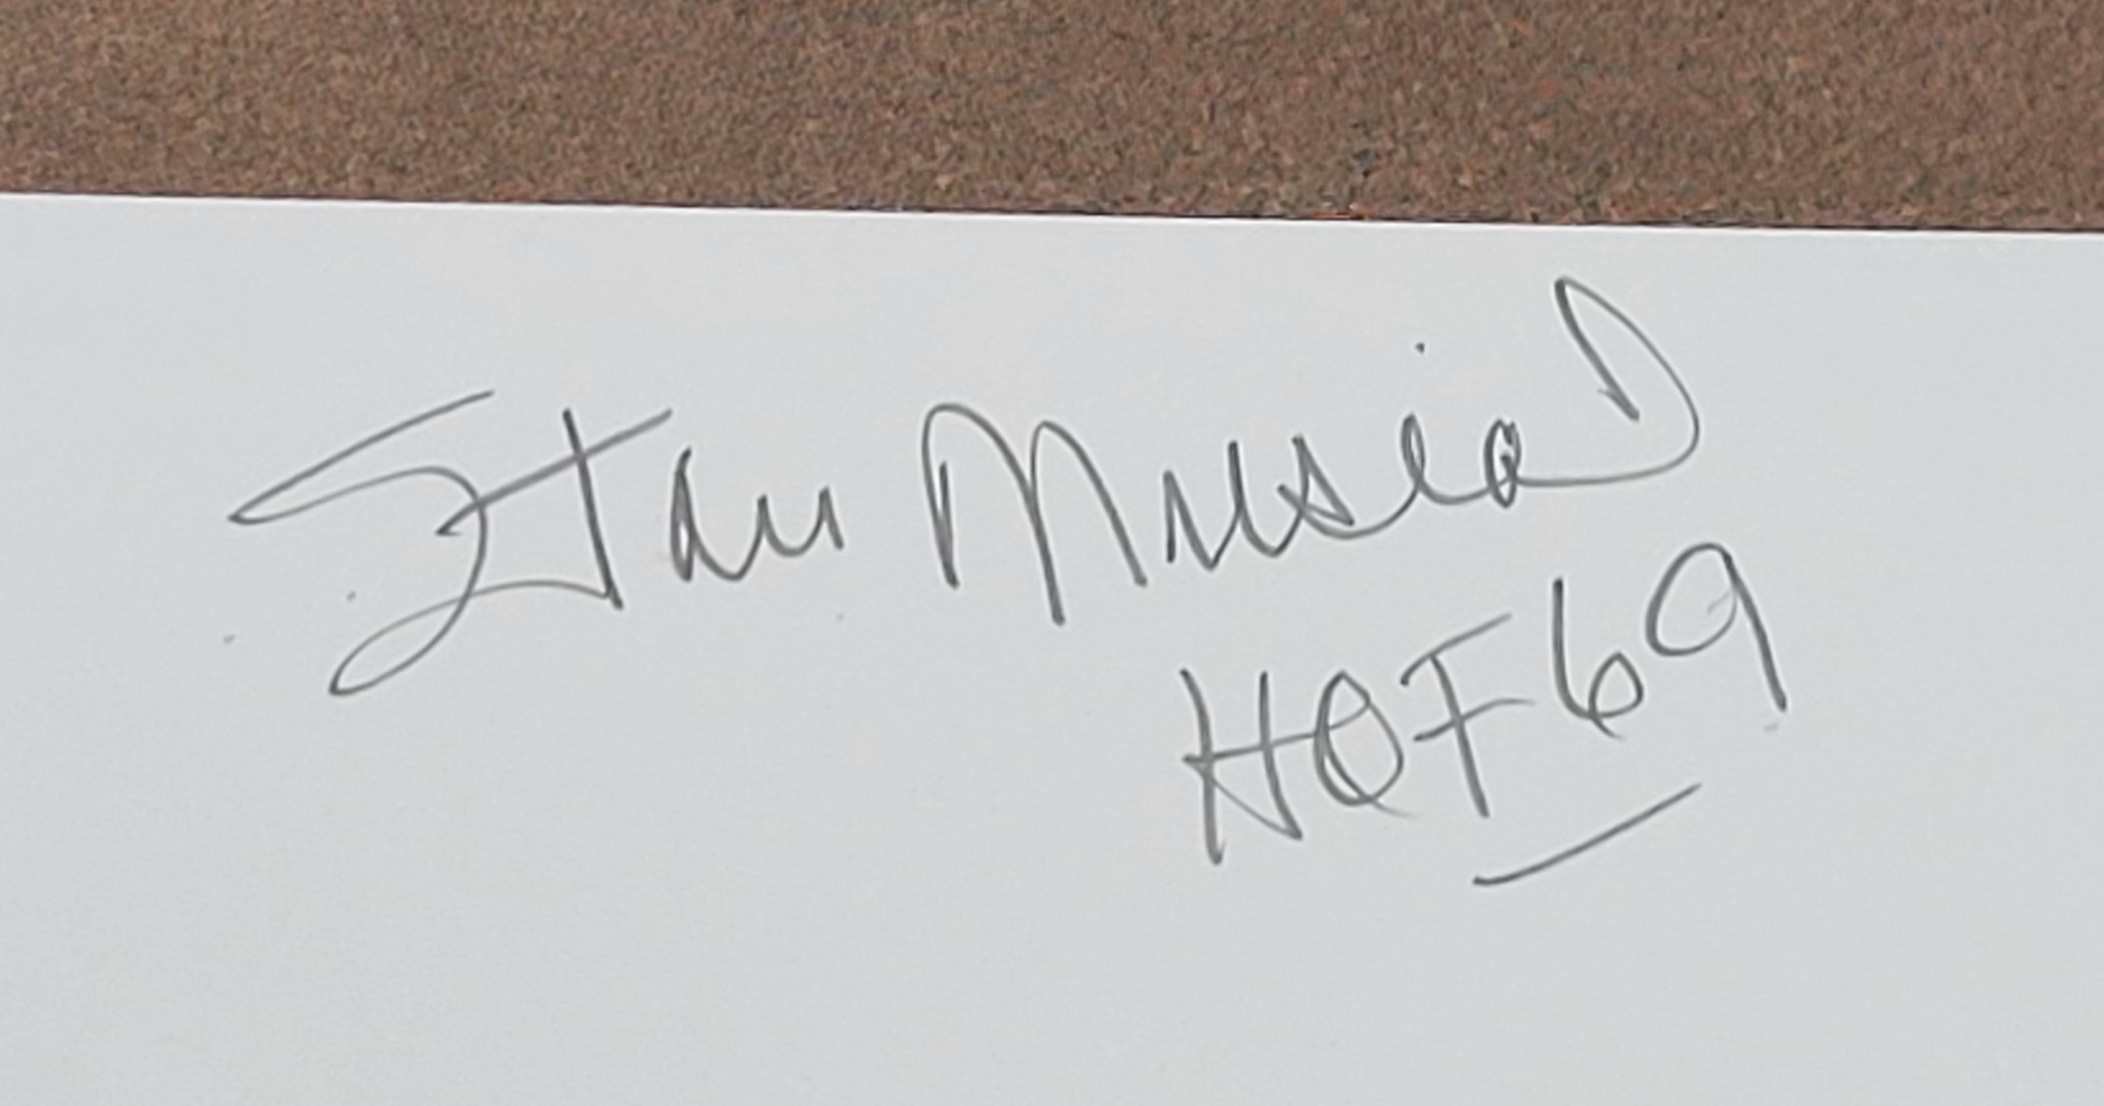 Stan Musial
HOF 69